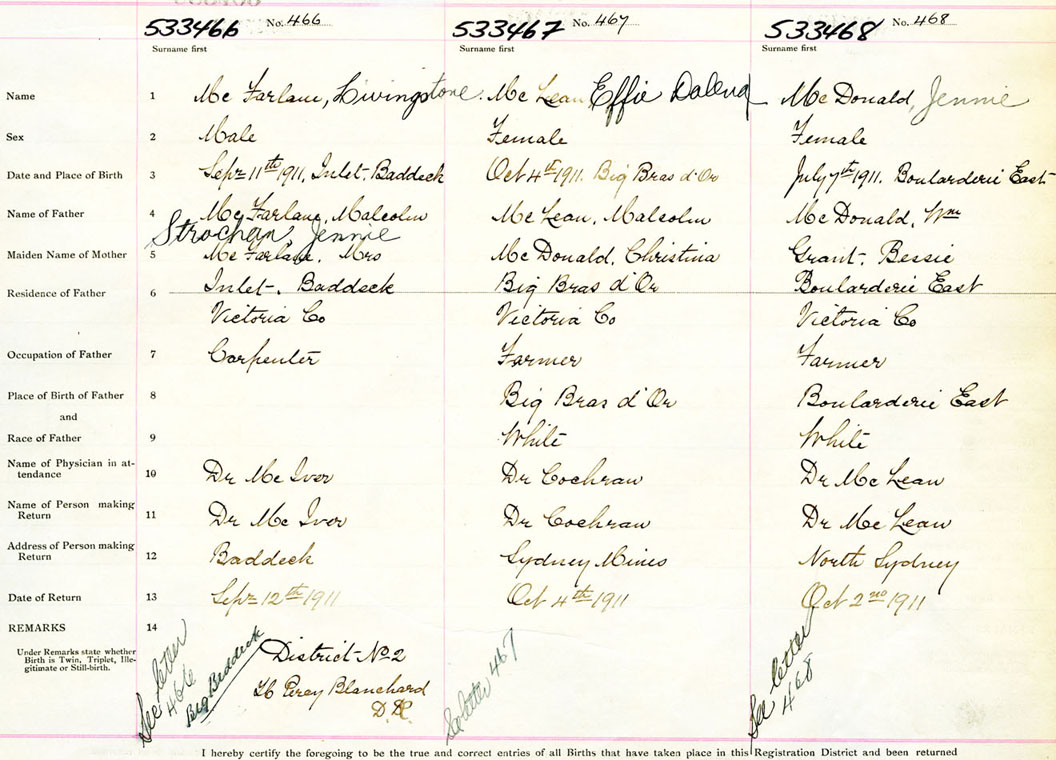 533466 No. 466 533467 No. 467 533468 No. 468
Surname first Surname first Surname first
Name 1 Mc Farlane, Livingstone Mc Lean Effie Dolena Mc Donald, Jennie
Sex 2 Male Female Female
Date and Place of Birth 3 Sept 11th 1911, Inlet, Baddeck Oct 4th 1911. Big Bras d'Or July 7th 1911. Boularderie East
Name of Father 4 Mc Farlane, Malcolm Mc Lean, Malcolm Mc Donald, Wm
Strachan, Jennie
Maiden Name of Mother 5 Mc Farlane, Mrs Mc Donald, Christina Grant, Bessie
Residence of Father 6 Inlet, Baddeck Big Bras d'Or Boularderie East
Victoria Co Victoria Co Victoria Co
Occupation of Father 7 Carpenter Farmer Farmer
Place of Birth of Father 8 Big Bras d'Or Boularderie East
and
Race of Father 9 White White
Name of Physician in at-
tendance 10 Dr Mc Ivor Dr Cochran Dr Mc Lean
Name of Person making
Return 11 Dr Mc Ivor Dr Cochran Dr Mc Lean
Address of Person making
Return 12 Baddeck Sydney Mines North Sydney
Date of Return 13 Sept 12th 1911 Oct 4th 1911 Oct 2nd 1911
REMARKS 14
Under Remarks state whether
Birth is Twin, Triplet, Ille-
gitimate or Still-birth.
See letter
466
Big Baddeck
District No 2
Percy Blanchard
D.R.
See letter 467
See letter
468
I hereby certify the foregoing to be the true and correct entries of all Births that have taken place in this Registration District and been returned